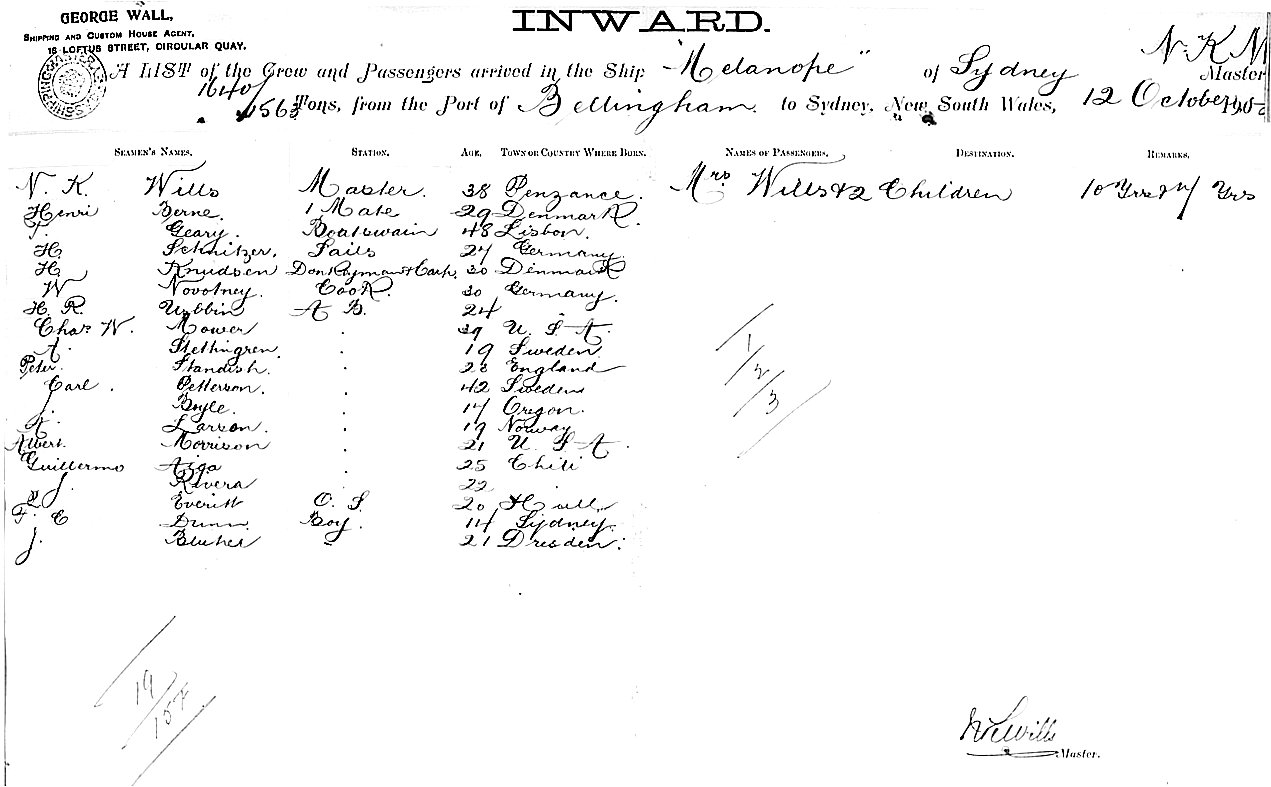 GEORGE WALL,
SHIPPING AND CUSTOM HOUSE AGENT,
16 LOFTUS STREET, CIRCULAR QUAY.
INWARD.
N. K. N
A LIST of the Crew and Passengers arrived in the Ship "Melanope" of Sydney Master
1640/
1563 Tons, from the Port of Bellingham to Sydney, New South Wales, 12 October 1905
SEAMEN'S NAMES. STATION. AGE. TOWN OR COUNTRY WHERE BORN. NAMES OF PASSENGERS. DESTINATION. REMARKS.
N. K. Wills Master. 38 Penzance. Mrs Wills & 2 Children 10 Yrs & 7 Yrs
Henri Berne. 1 Mate 29 Denmark
F. Geary. Boatswain 48 Lisbon.
H. Schnitzer. Sails 27 Germany
H. Knudsen Donkeyman & Carp. 30 Denmark
W Novotney. Cook. 30 Germany.
H. R. Ubbin A B. 24
Chas. W. Mower . 39 U. S. A.
A. Stethingren . 19 Sweden
Peter. Standish. . 28 England
Carl. Petterson. . 42 Sweden
J. Boyle. . 17 Oregon.
A. Larson. . 19 Norway
Albert. Morrison . 21 U. S. A.
Guillermo Aiga . 25 Chili
J. Rivera . 22 .
Everitt O. S. 20 Hull
F. C Dunn. Boy. 14 Sydney.
J. Bluher " 21 Dresden.
1/2/3
19/
N K Wills
Master.